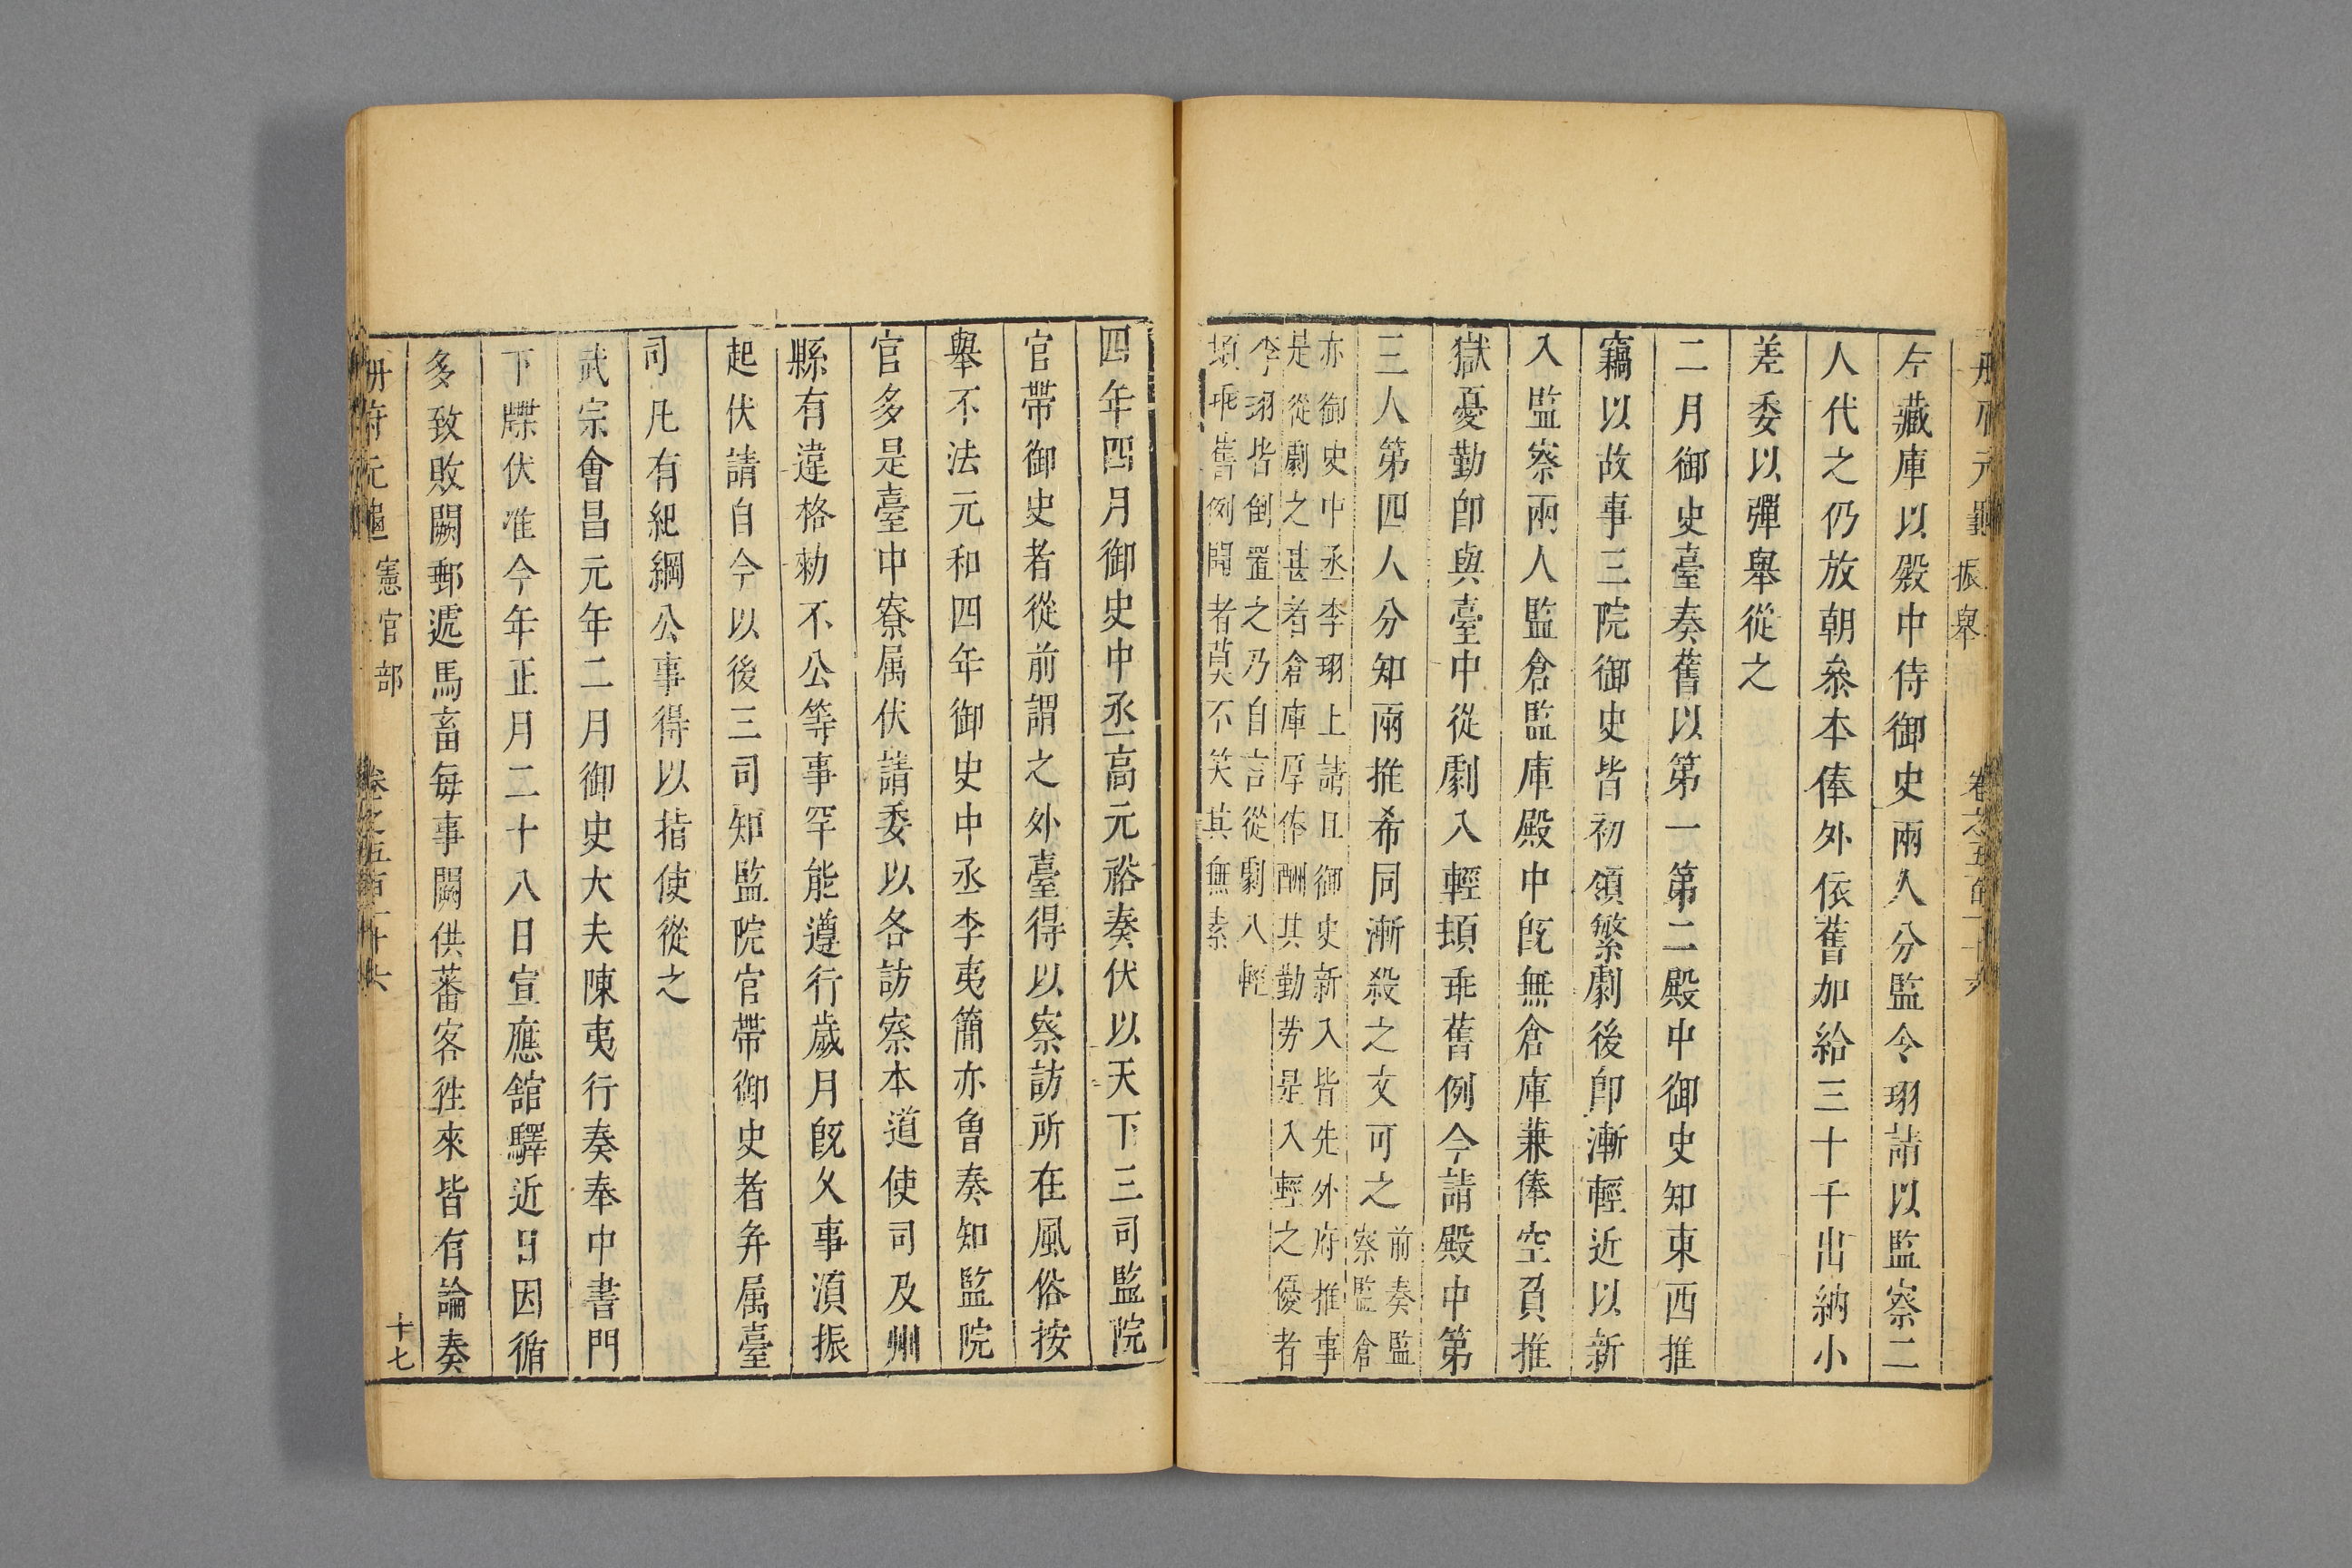 冊府元龜 振舉 卷之五百一十六
左藏庫以殿中侍御史兩人分監令珝請以監察二
人代之仍放朝叅本俸外依舊加給三十千出納小
差委以彈舉從之
二月御史臺奏舊以第一第二殿中御史知東西推
竊以故事三院御史皆初領繁劇後卽漸輕近以新
入監察兩人監倉監庫殿中旣無倉庫兼俸空負推
獄憂勤卽與臺中從劇入輕頃乖舊例今請殿中第
三人第四人分知兩推希同漸殺之文可之
前奏監
察監倉
亦御史中丞李珝上請且御史新入皆先外府推事
是從劇之甚者倉庫厚俸酬其勤勞是入輕之優者
李珝皆倒置之乃自言從劇入輕
頃乖舊例聞者莫不笑其無素
四年四月御史中丞高元裕奏伏以天下三司監院
官帶御史者從前謂之外臺得以察訪所在風俗按
舉不法元和四年御史中丞李夷簡亦魯奏知監院
官多是臺中寮属伏請委以各訪察本道使司及州
縣有違格勑不公等事罕能遵行歲月旣久事湏振
起伏請自今以後三司知監院官帶御史者弁属臺
司凡有紀綱公事得以指使從之
武宗會昌元年二月御史大夫陳夷行奏奉中書門
下牒伏准今年正月二十八日宣應舘驛近日因循
多致敗闕郵遞馬畜每事闕供蕃客徃來皆有論奏
冊府元龜 憲官部 卷之五百一十六 十七